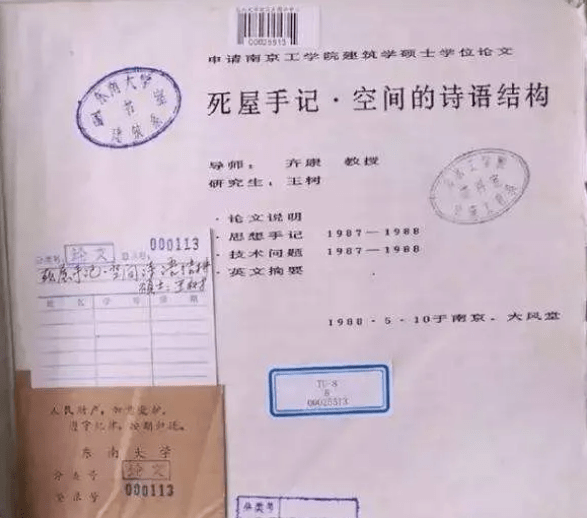 00025513
申请南京工学院建筑学硕士学位论文
死屋手记·空间的诗语结构
导师： 齐康 教授
研究生：王树
·论文说明
·思想手记 1987—1988
·技术问题 1987—1988
·英文摘要
1988·5·10于南京．大风堂
东南大学
图书室
建筑系
论文
000113
死屋手记·空间诗语结构
硕士
TU-8
8
00025513
人民财产，如意爱护，
遵守纪律，按期归还。
东南大学
分类号 论文
登录号 000113
分类号